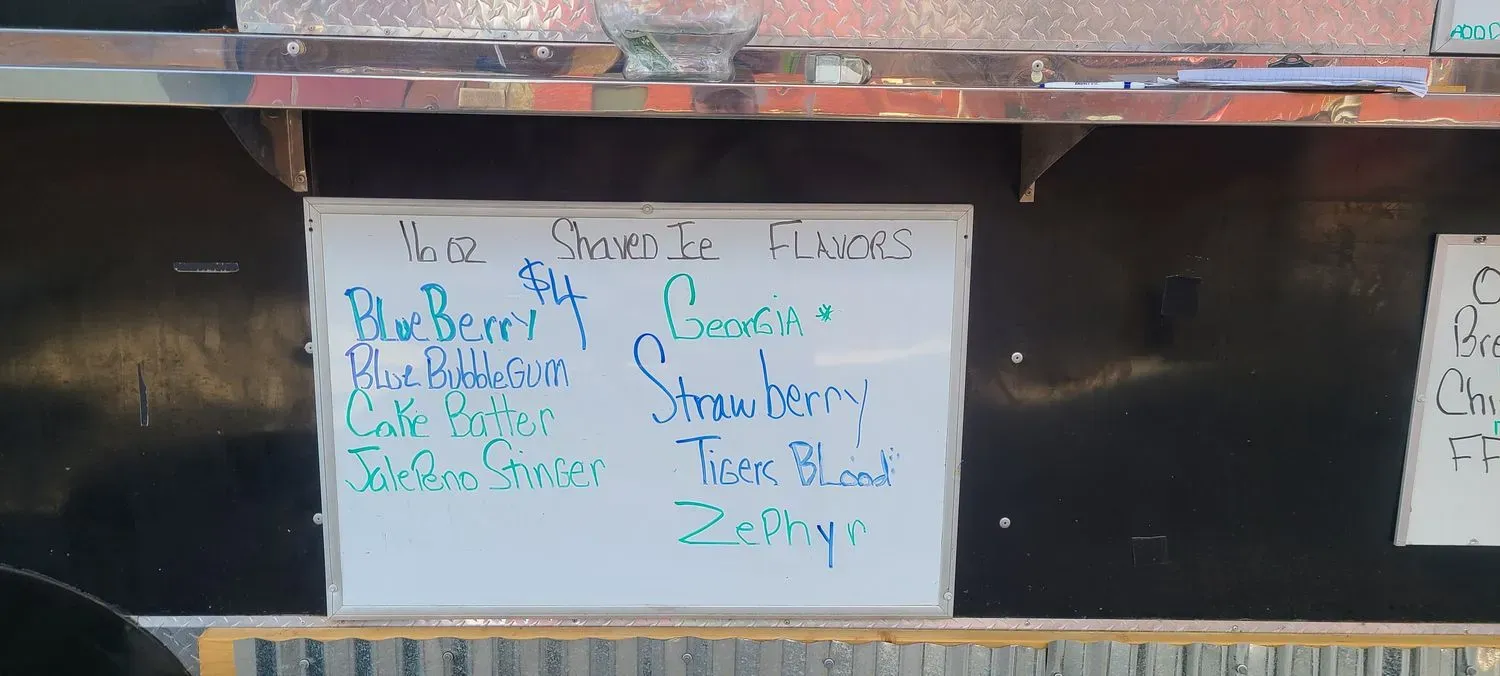 ADD
16 OZ Shaved Ice FLAVORS
$4
BLueBerry
Blue BubbleGum
Cake Batter
JalePeno Stinger
GeorGiA *
Strawberry
TiGers BLood
ZePhyr
O
Bre
Chi
FF